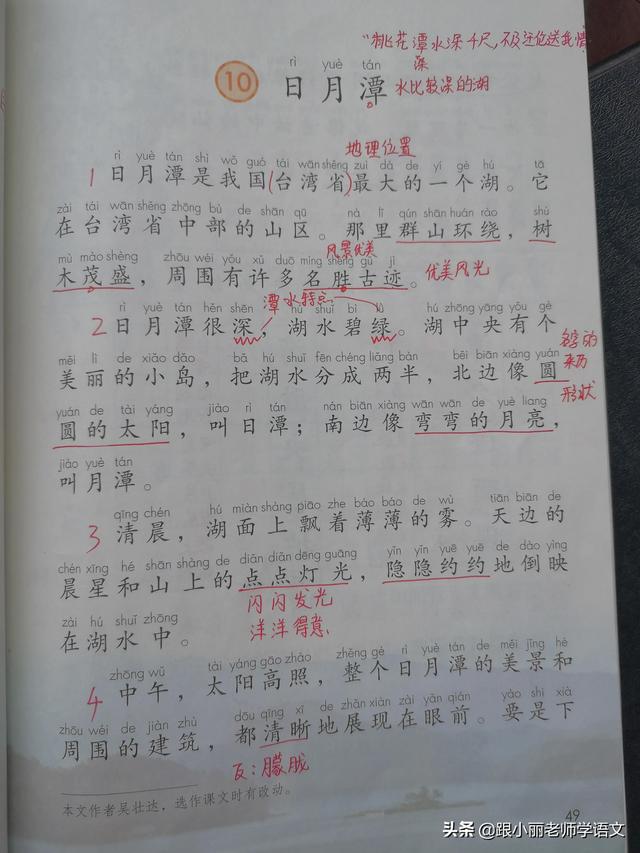 “桃花潭水深4尺,不及汪伦送我情
rì yuè tán
深
10 日月潭
水比较深的湖
地理位置
rì yuè tán shì wǒ guó tái wān shěng zuì dà de yí gè hú tā
1 日月潭是我国(台湾省)最大的一个湖。它
zài tái wān shěng zhōng bù de shān qū nà lǐ qún shān huán rào shù
在台湾省中部的山区。那里群山环绕,树
mù mào shèng zhōu wéi yǒu xǔ duō míng shèng gǔ jì
风景优美
木茂盛,周围有许多名胜古迹。
优美风光
rì yuè tán hěn shēn hú shuǐ bì lǜ hú zhōng yāng yǒu gè
潭水特点:
2 日月潭很深,湖水碧绿。湖中央有个
名字的
来历
měi lì de xiǎo dǎo bǎ hú shuǐ fēn chéng liǎng bàn běi biān xiàng yuán
美丽的小岛,把湖水分成两半,北边像圆
形状
yuán de tài yáng jiào rì tán nán biān xiàng wān wān de yuè liang
圆的太阳,叫日潭;南边像弯弯的月亮,
jiào yuè tán
叫月潭。
qīng chén hú miàn shàng piāo zhe báo báo de wù tiān biān de
3 清晨,湖面上飘着薄薄的雾。天边的
chén xīng hé shān shàng de diǎn diǎn dēng guāng yǐn yǐn yuē yuē de dào yìng
晨星和山上的点点灯光,隐隐约约地倒映
闪闪发光
zài hú shuǐ zhōng
在湖水中。
洋洋得意
zhōng wǔ tài yáng gāo zhào zhěng gè rì yuè tán de měi jǐng hé
4 中午,太阳高照,整个日月潭的美景和
zhōu wéi de jiàn zhù dōu qīng xī de zhǎn xiàn zài yǎn qián yào shi xià
周围的建筑,都清晰地展现在眼前。要是下
反:朦胧
本文作者吴壮达,选作课文时有改动。
49
头条 @跟小丽老师学语文